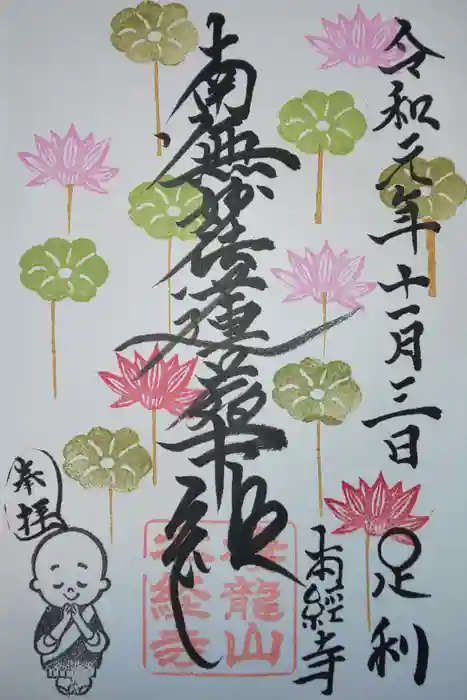 令和元年十一月三日
足利
本經寺
南無妙法蓮華経
龍山
本經寺
奉拝